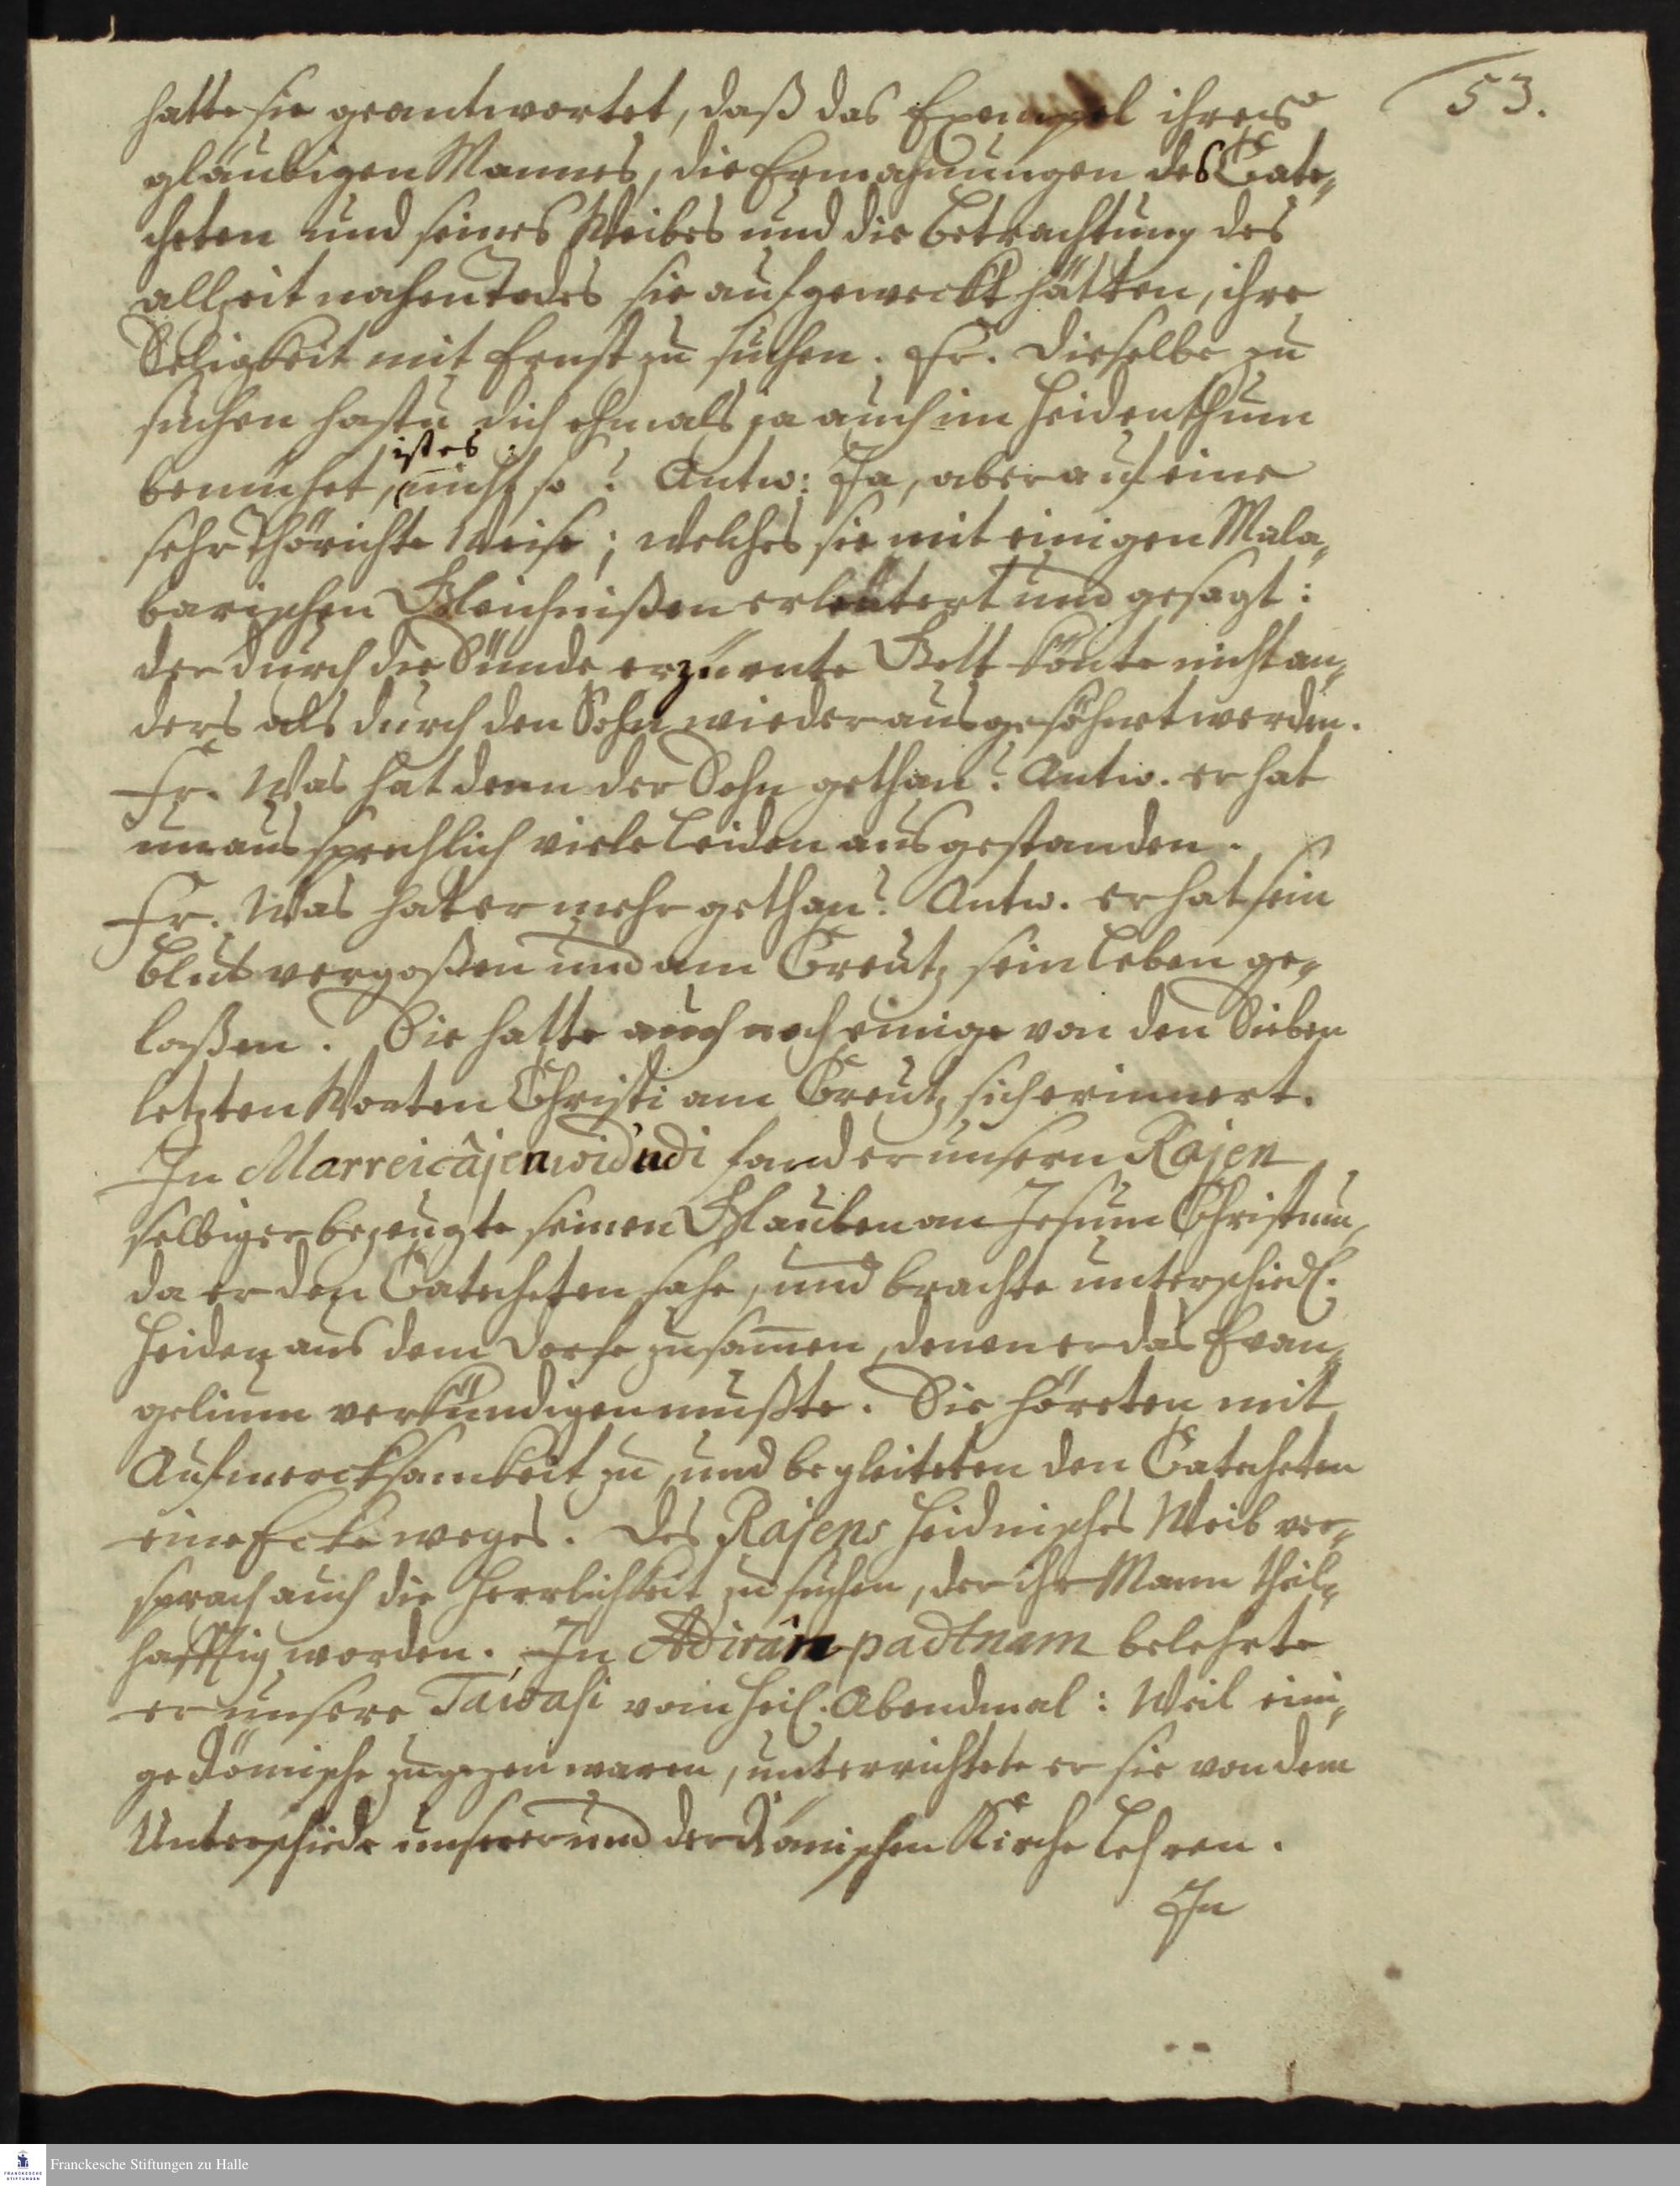 53.
hatte sie geantwortet, daß das Exempel ihres
gläubigen Mannes, die Ermahnungen des Cate-
cheten und seines Weibes und die Betrachtung des
allzeit nahen Todes sie aufgeweckt hätten, ihre
Seligkeit mit Ernst zu suchen. Fr. Dieselbe zu
suchen hastu dich ehmals ja auch im Heidenthum
bemühet, ist es nicht so? Antw: Ja, aber auf eine
sehr thörichte Weise; welches sie mit einigen Mala-
barischen Gleichnißen erleutert und gesagt:
der durch die Sünde erzürnte Gott könte nicht an-
ders als durch den Sohn wieder ausgesöhnet werden.
Fr. Was hat denn der Sohn gethan? Antw. er hat
unaussprechlich viele Leiden ausgestanden.
Fr. Was hat er mehr gethan? Antw. er hat sein
Blut vergoßen und am Creutz sein Leben ge-
laßen. Sie hatte auch noch einige von den Sieben
letzten Worten Christi am Creutz sich erinnert.
In Marreicâjenwidudi fand er unsern Rajen
selbiger bezeugte seinen Glauben an Jesum Christum,
da er den Catecheten sahe, und brachte unterschiedl.
Heiden aus dem Dorfe zusamen, denen er das Evan-
gelium verkündigen mußte. Sie höreten mit
Aufmercksamkeit zu, und begleiteten den Catecheten
eine Ecke weges. Des Rajens heidnisches Weib ver-
sprach auch die Herrlichkeit zu suchen, der ihr Mann theil-
hafftig worden. In Adirâmpadtnam belehrte
er unsere Tawasi vom heil. Abendmal: Weil eini-
ge Römische zugegen waren, unterrichtete er sie von dem
Unterschiede unserer und der Römischen Kirche Lehren.
In
Franckesche Stiftungen zu Halle